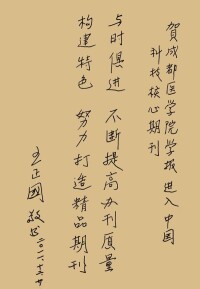 賀成都医学院学报进入中国
科技核心期刊
与时俱进 不断提高办刊质量
构建特色 努力打造精品期刊
王正國 敬贺